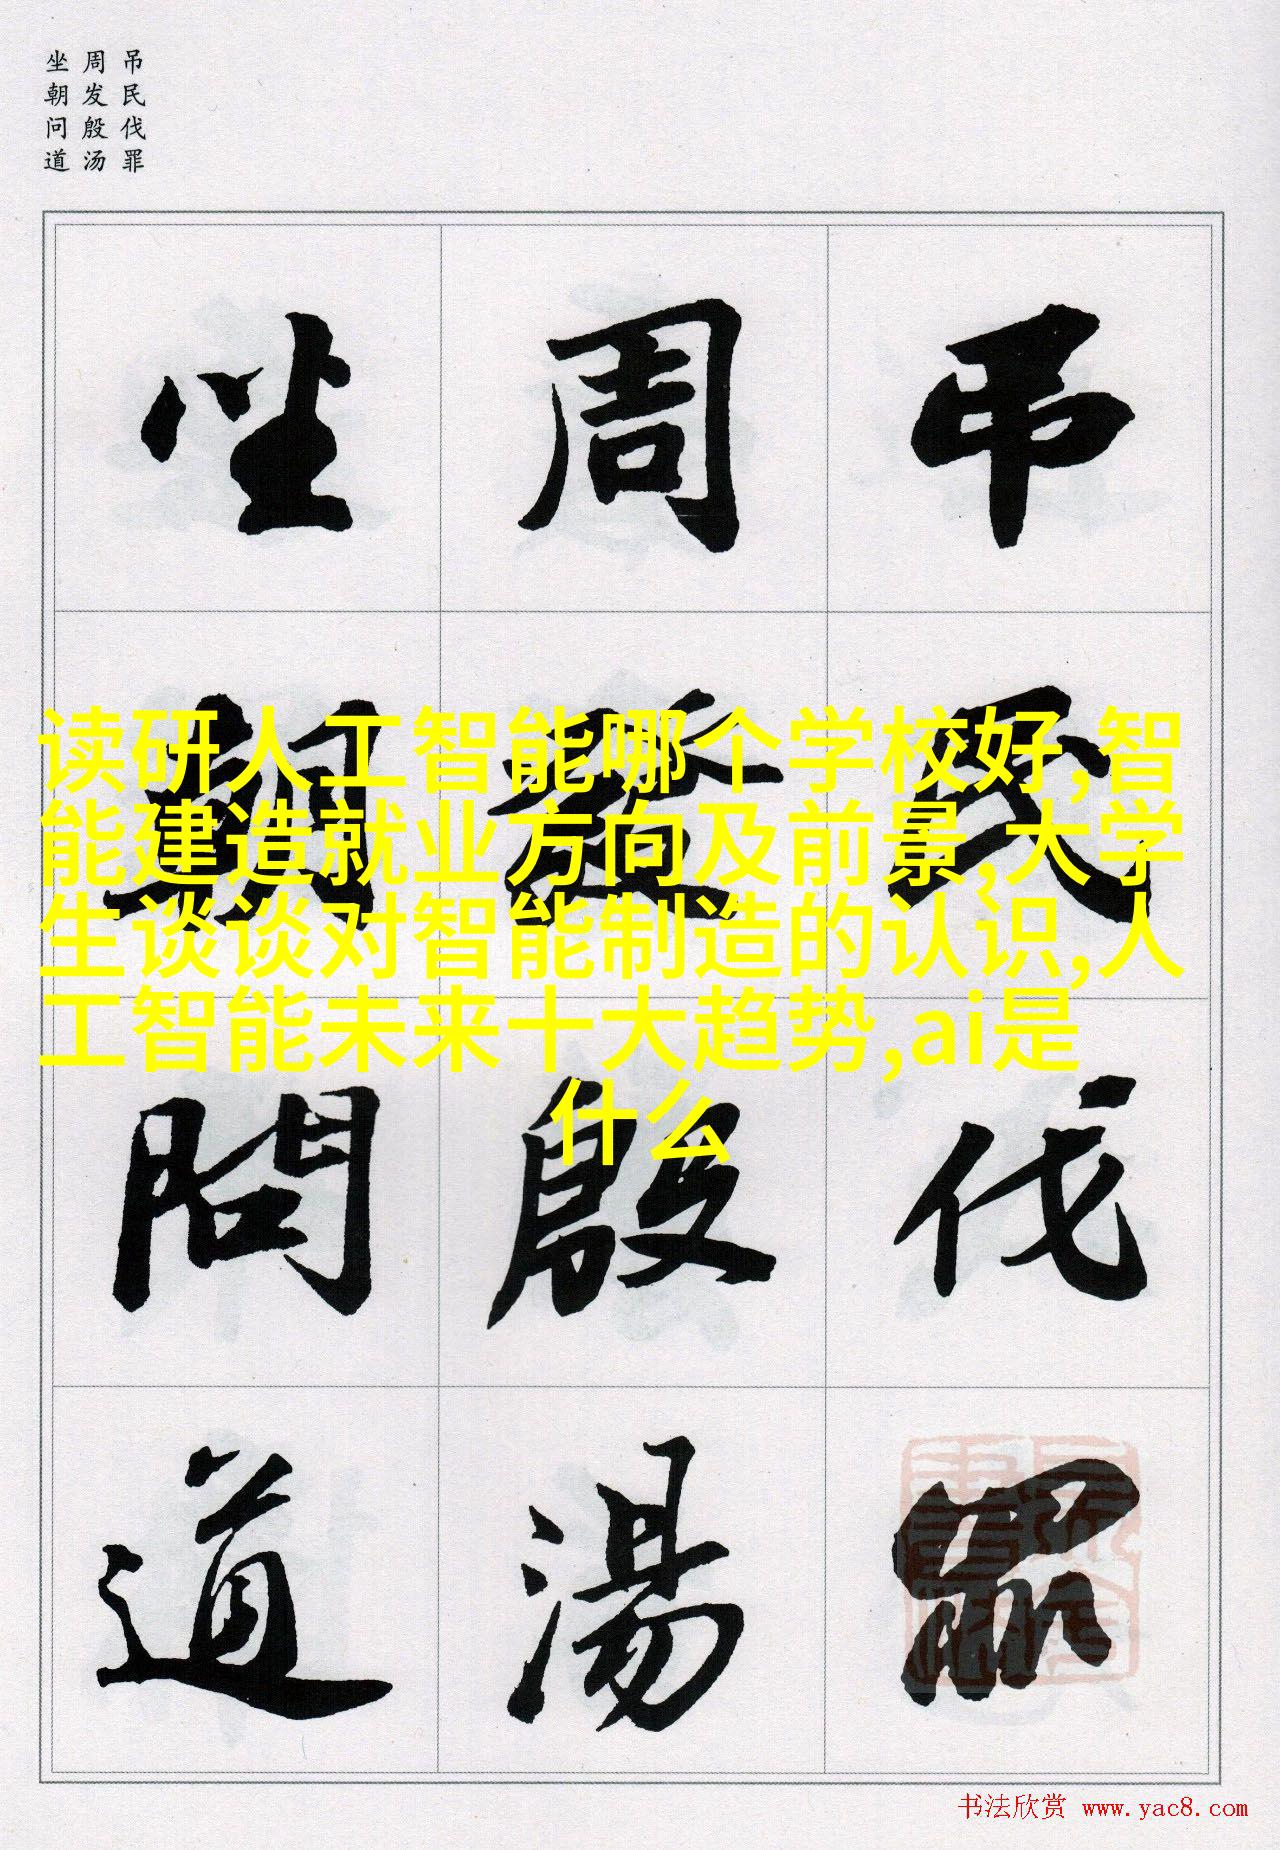 吊民伐罪
周发殷汤
坐朝问道
吊民伐罪
周發殷湯
坐朝問道
读研人工智能哪个学校好,智
能建造就业方向及前景,大学
生谈谈对智能制造的认识,人
工智能未来十大趋势,ai是
什么
书法欣赏 www.yac8.com